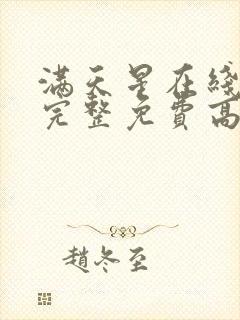 滿天星在綫
完整免費高
趙冬至